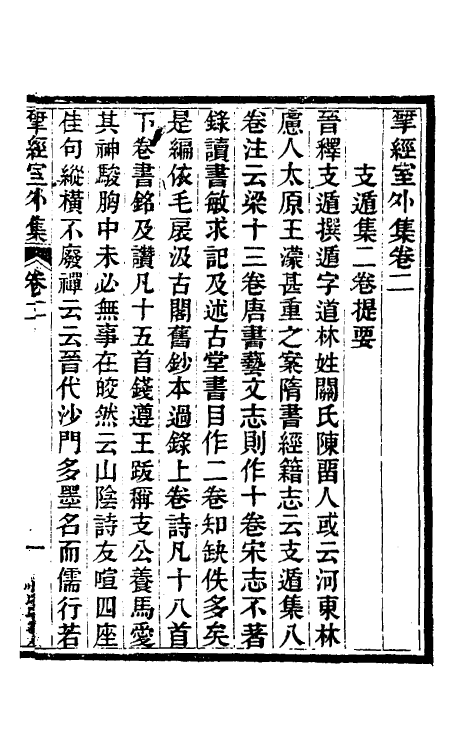 揅經室外集卷二
支遁集二卷提要
晉釋支遁撰遁字道林姓關氏陳畱人或云河東林
慮人太原王濛甚重之案隋書經籍志云支遁集八
卷注云梁十三卷唐書藝文志則作十卷宋志不著
錄讀書敏求記及述古堂書目作二卷知缺佚多矣
是編依毛扆汲古閣舊鈔本過錄上卷詩凡十八首
下卷書銘及讚凡十五首錢遵王䟦稱支公養馬愛
其神駿胸中未必無事在皎然云山陰詩友喧四座
佳句縱橫不廢禪云云晉代沙門多墨名而儒行若
揅經室外集 卷二 一